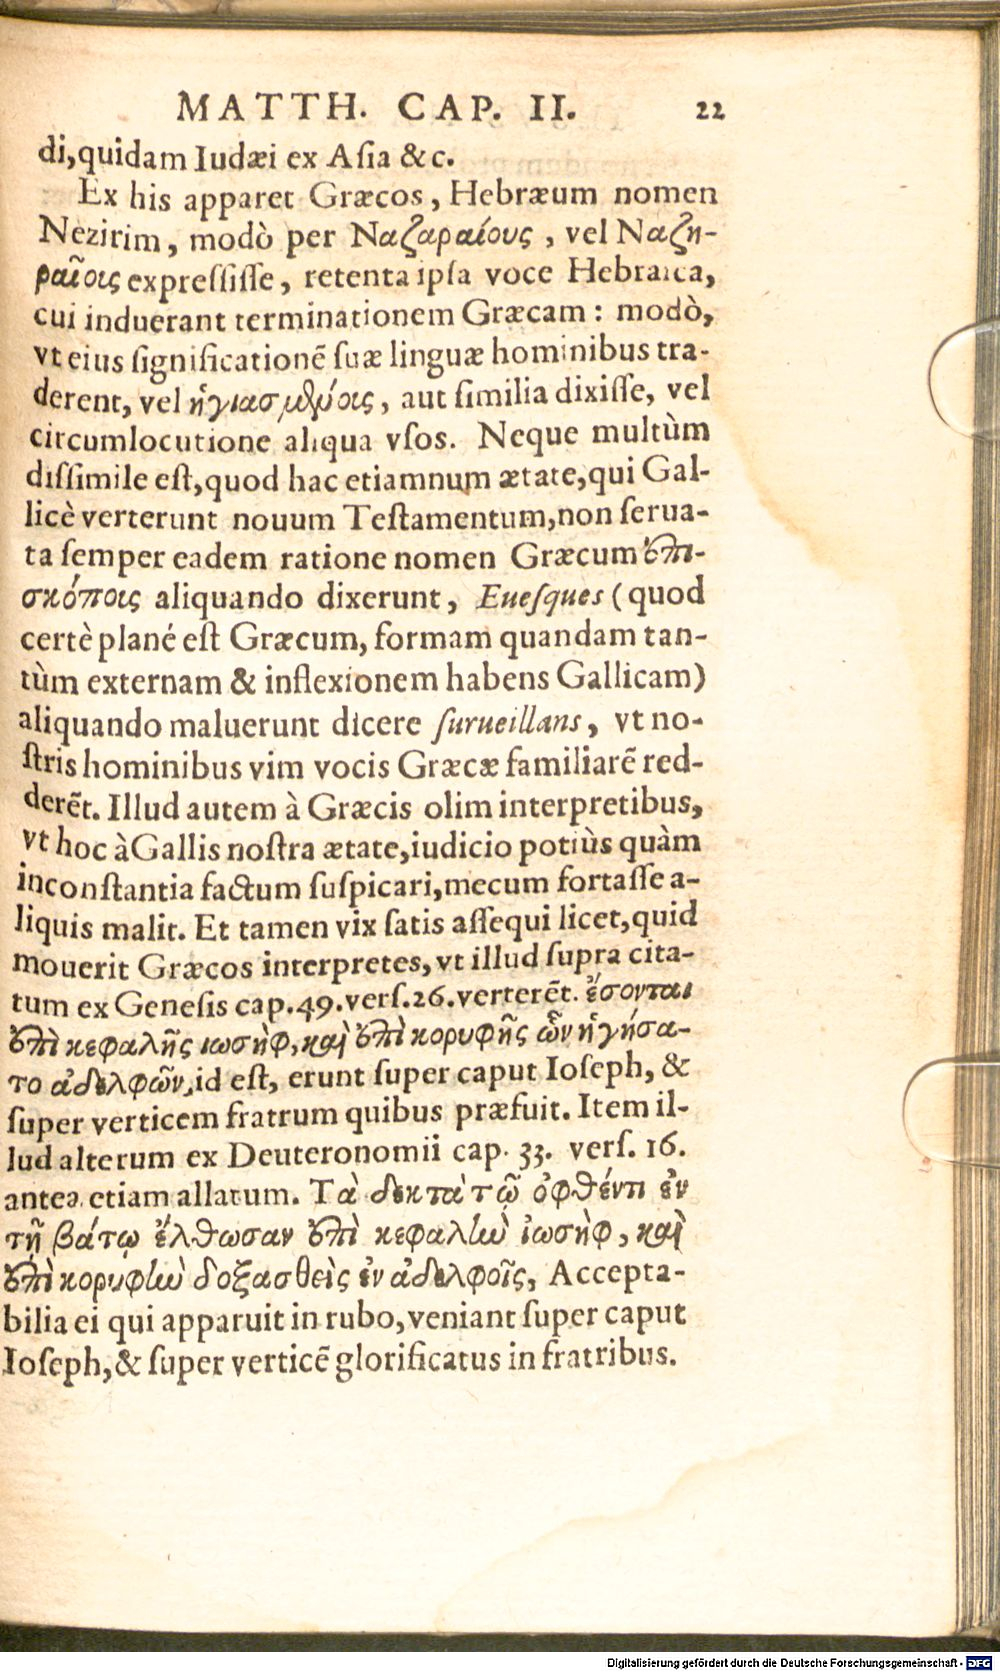 MATTH. CAP. II. 22
di, quidam Iudæi ex Aſia &c.
Ex his apparet Græcos, Hebræum nomen
Nezirim, modò per Ναζαραίους, vel Ναζη-
ραῖοις expreſſiſſe, retenta ipſa voce Hebraica,
cui induerant terminationem Græcam: modò,
vt eius significationẽ ſuæ linguæ hominibus tra-
derent, vel ἡγιασμένοις, aut ſimilia dixiſſe, vel
circumlocutione aliqua vſos. Neque multùm
diſſimile eſt, quod hac etiamnum ætate, qui Gal-
licè verterunt nouum Teſtamentum, non ſerua-
ta ſemper eadem ratione nomen Græcum ἐπι-
σκόποις aliquando dixerunt, Eueſques (quod
certè plané eſt Græcum, formam quandam tan-
tùm externam & inflexionem habens Gallicam)
aliquando maluerunt dicere ſurueillans, vt no-
ſtris hominibus vim vocis Græcæ familiarẽ red-
derẽt. Illud autem à Græcis olim interpretibus,
vt hoc à Gallis noſtra ætate, iudicio potiùs quàm
inconſtantia factum ſuſpicari, mecum fortaſſe a-
liquis malit. Et tamen vix ſatis aſſequi licet, quid
mouerit Græcos interpretes, vt illud ſupra cita-
tum ex Geneſis cap. 49. verſ. 26. verterẽt. ἔσονται
ἐπὶ κεφαλῆς ιωσὴφ, καὶ ἐπὶ κορυφῆς ὧν ἡγήσα-
το ἀδελφῶν, id eſt, erunt ſuper caput Ioſeph, &
ſuper verticem fratrum quibus præfuit. Item il-
lud alterum ex Deuteronomii cap. 33. verſ. 16.
antea etiam allatum. Τὰ δεκτὰ τῷ ὀφθέντι ἐν
τῇ βάτῳ ἔλθωσαν ἐπὶ κεφαλὴν ἰωσὴφ, καὶ
ἐπὶ κορυφὴν δοξασθεὶς ἐν ἀδελφοῖς, Accepta-
bilia ei qui apparuit in rubo, veniant ſuper caput
Ioſeph, & ſuper verticẽ glorificatus in fratribus.
Digitalisierung gefördert durch die Deutsche Forschungsgemeinschaft - DFG